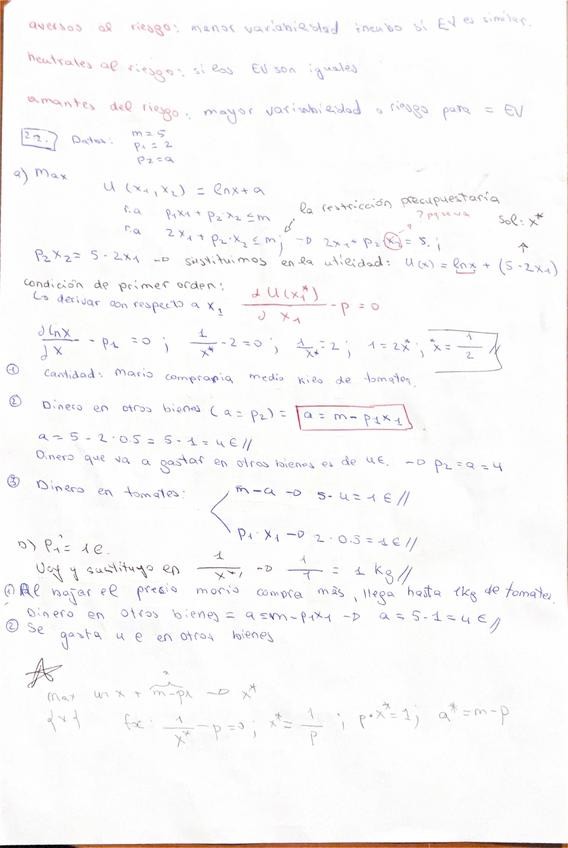 aversos al riesgo: menor variabilidad incluso si EV es similar.
neutrales al riesgo: si los EV son iguales
amantes del riesgo: mayor variabilidad o riesgo para = EV
22. Datos: m=5
p1=2
p2=a
a) Max
U(x1,x2) = lnx+a
r.a p1x1+p2x2≤m
la restricción presupuestaria
r.a 2x1+p2·x2≤m; → 2x1+p2·x2=5.;
Sol: x*
p2x2=5-2x1 → sustituimos en la utilidad: U(x)=lnx+(5-2x1)
condición de primer orden:
↳ derivar con respecto a x1 ∂U(x1*)/∂x1 - p=0
∂lnx/∂x - p1=0; 1/x* -2=0; 1/x*=2; 1=2x*; x*=1/2 //
① Cantidad: Mario compraria medio kilo de tomates.
② Dinero en otros bienes (a=p2) = a=m-p1x1
a=5-2·0.5=5-1=4€//
Dinero que va a gastar en otros bienes es de 4€. → p2=a=4
③ Dinero en tomates: m-a → 5-4=1€//
p1·x1 → 2·0.5=1€//
b) p1'=1€.
Voy y sustituyo en 1/x*1 → 1/1 = 1 kg//
① Al bajar el precio mario compra más, llega hasta 1kg de tomates.
Dinero en otros bienes = a=m-p1x1 → a=5-1=4€//
② Se gasta 4€ en otros bienes
max ln x + m-px → x*
{x}
fx: 1/x* -p=0; x*=1/p; p·x*=1; a*=m-p